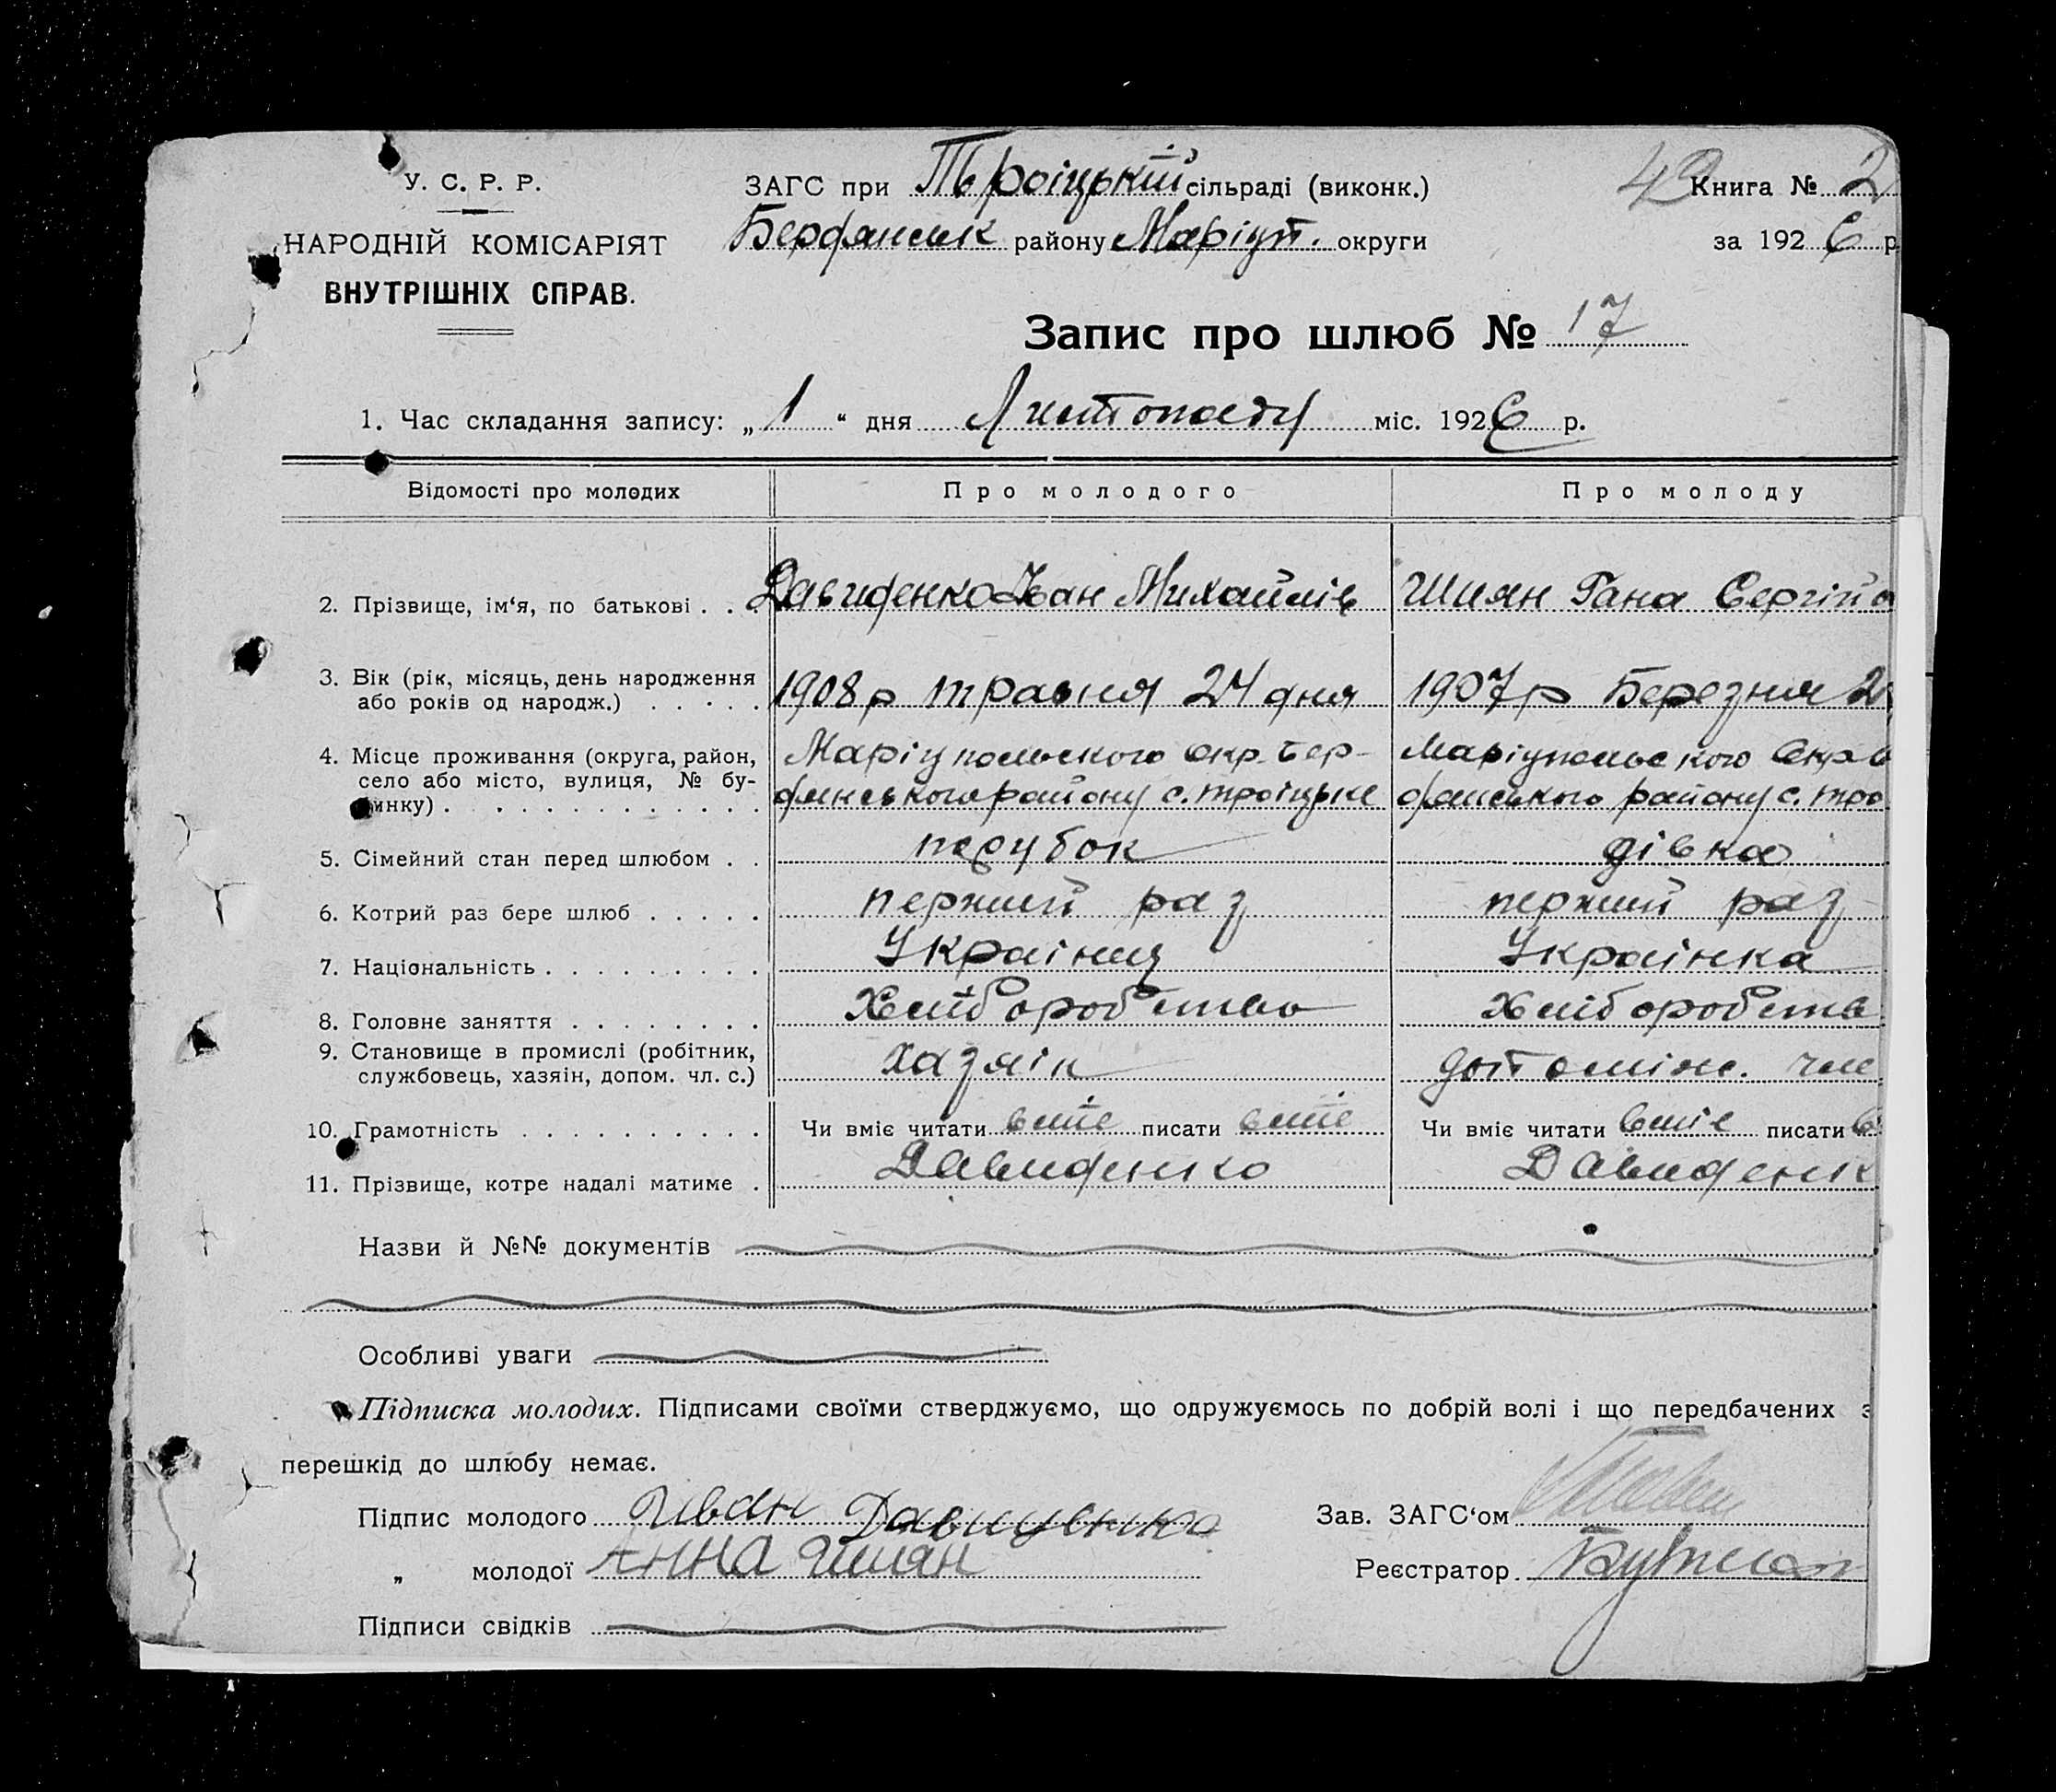 У. С. Р. Р.
НАРОДНІЙ КОМІСАРІЯТ
ВНУТРІШНІХ СПРАВ.
ЗАГС при Троіцькій сільраді (виконк.)
Бердянськ району Маріуп. округи
Книга № 2
за 1926 р
Запис про шлюб № 17
1. Час складання запису: „1“ дня Листопаду міс. 1926 р.
Відомості про молодих Про молодого Про молоду
2. Прізвище, ім‘я, по батькові . . Давиденко Іван Михайлів Шиян Гана Сергійо
3. Вік (рік, місяць, день народження
або років од народж.) . . . . . 1908 р травня 24 дня 1907 р Березня 2
4. Місце проживання (округа, район, Маріупольского Окр. Бер- Маріупольского Окр. Б
село або місто, вулиця, № бу- дянського району с. Троіцьке дянського району с. Тро
динку) . . . . . . . . . . . .
5. Сімейний стан перед шлюбом . . парубок дівка
6. Котрий раз бере шлюб . . . . . перший раз перший раз
7. Національність . . . . . . . . . Украінць Украінка
8. Головне заняття . . . . . . . . Хліборобство Хліборобств
9. Становище в промислі (робітник,
службовець, хазяїн, допом. чл. с.) Хазяін допоміж. чле
10. Грамотність . . . . . . . . . . Чи вміє читати вміє писати вміє Чи вміє читати вміє писати в
11. Прізвище, котре надалі матиме . Давиденко Давиденк
Назви й №№ документів
Особливі уваги
Підписка молодих. Підписами своїми стверджуємо, що одружуємось по добрій волі і що передбачених з
перешкід до шлюбу немає.
Підпис молодого Иван Давиденко Зав. ЗАГС‘ом
„ молодої Анна Шиян Реєстратор
Підписи свідків